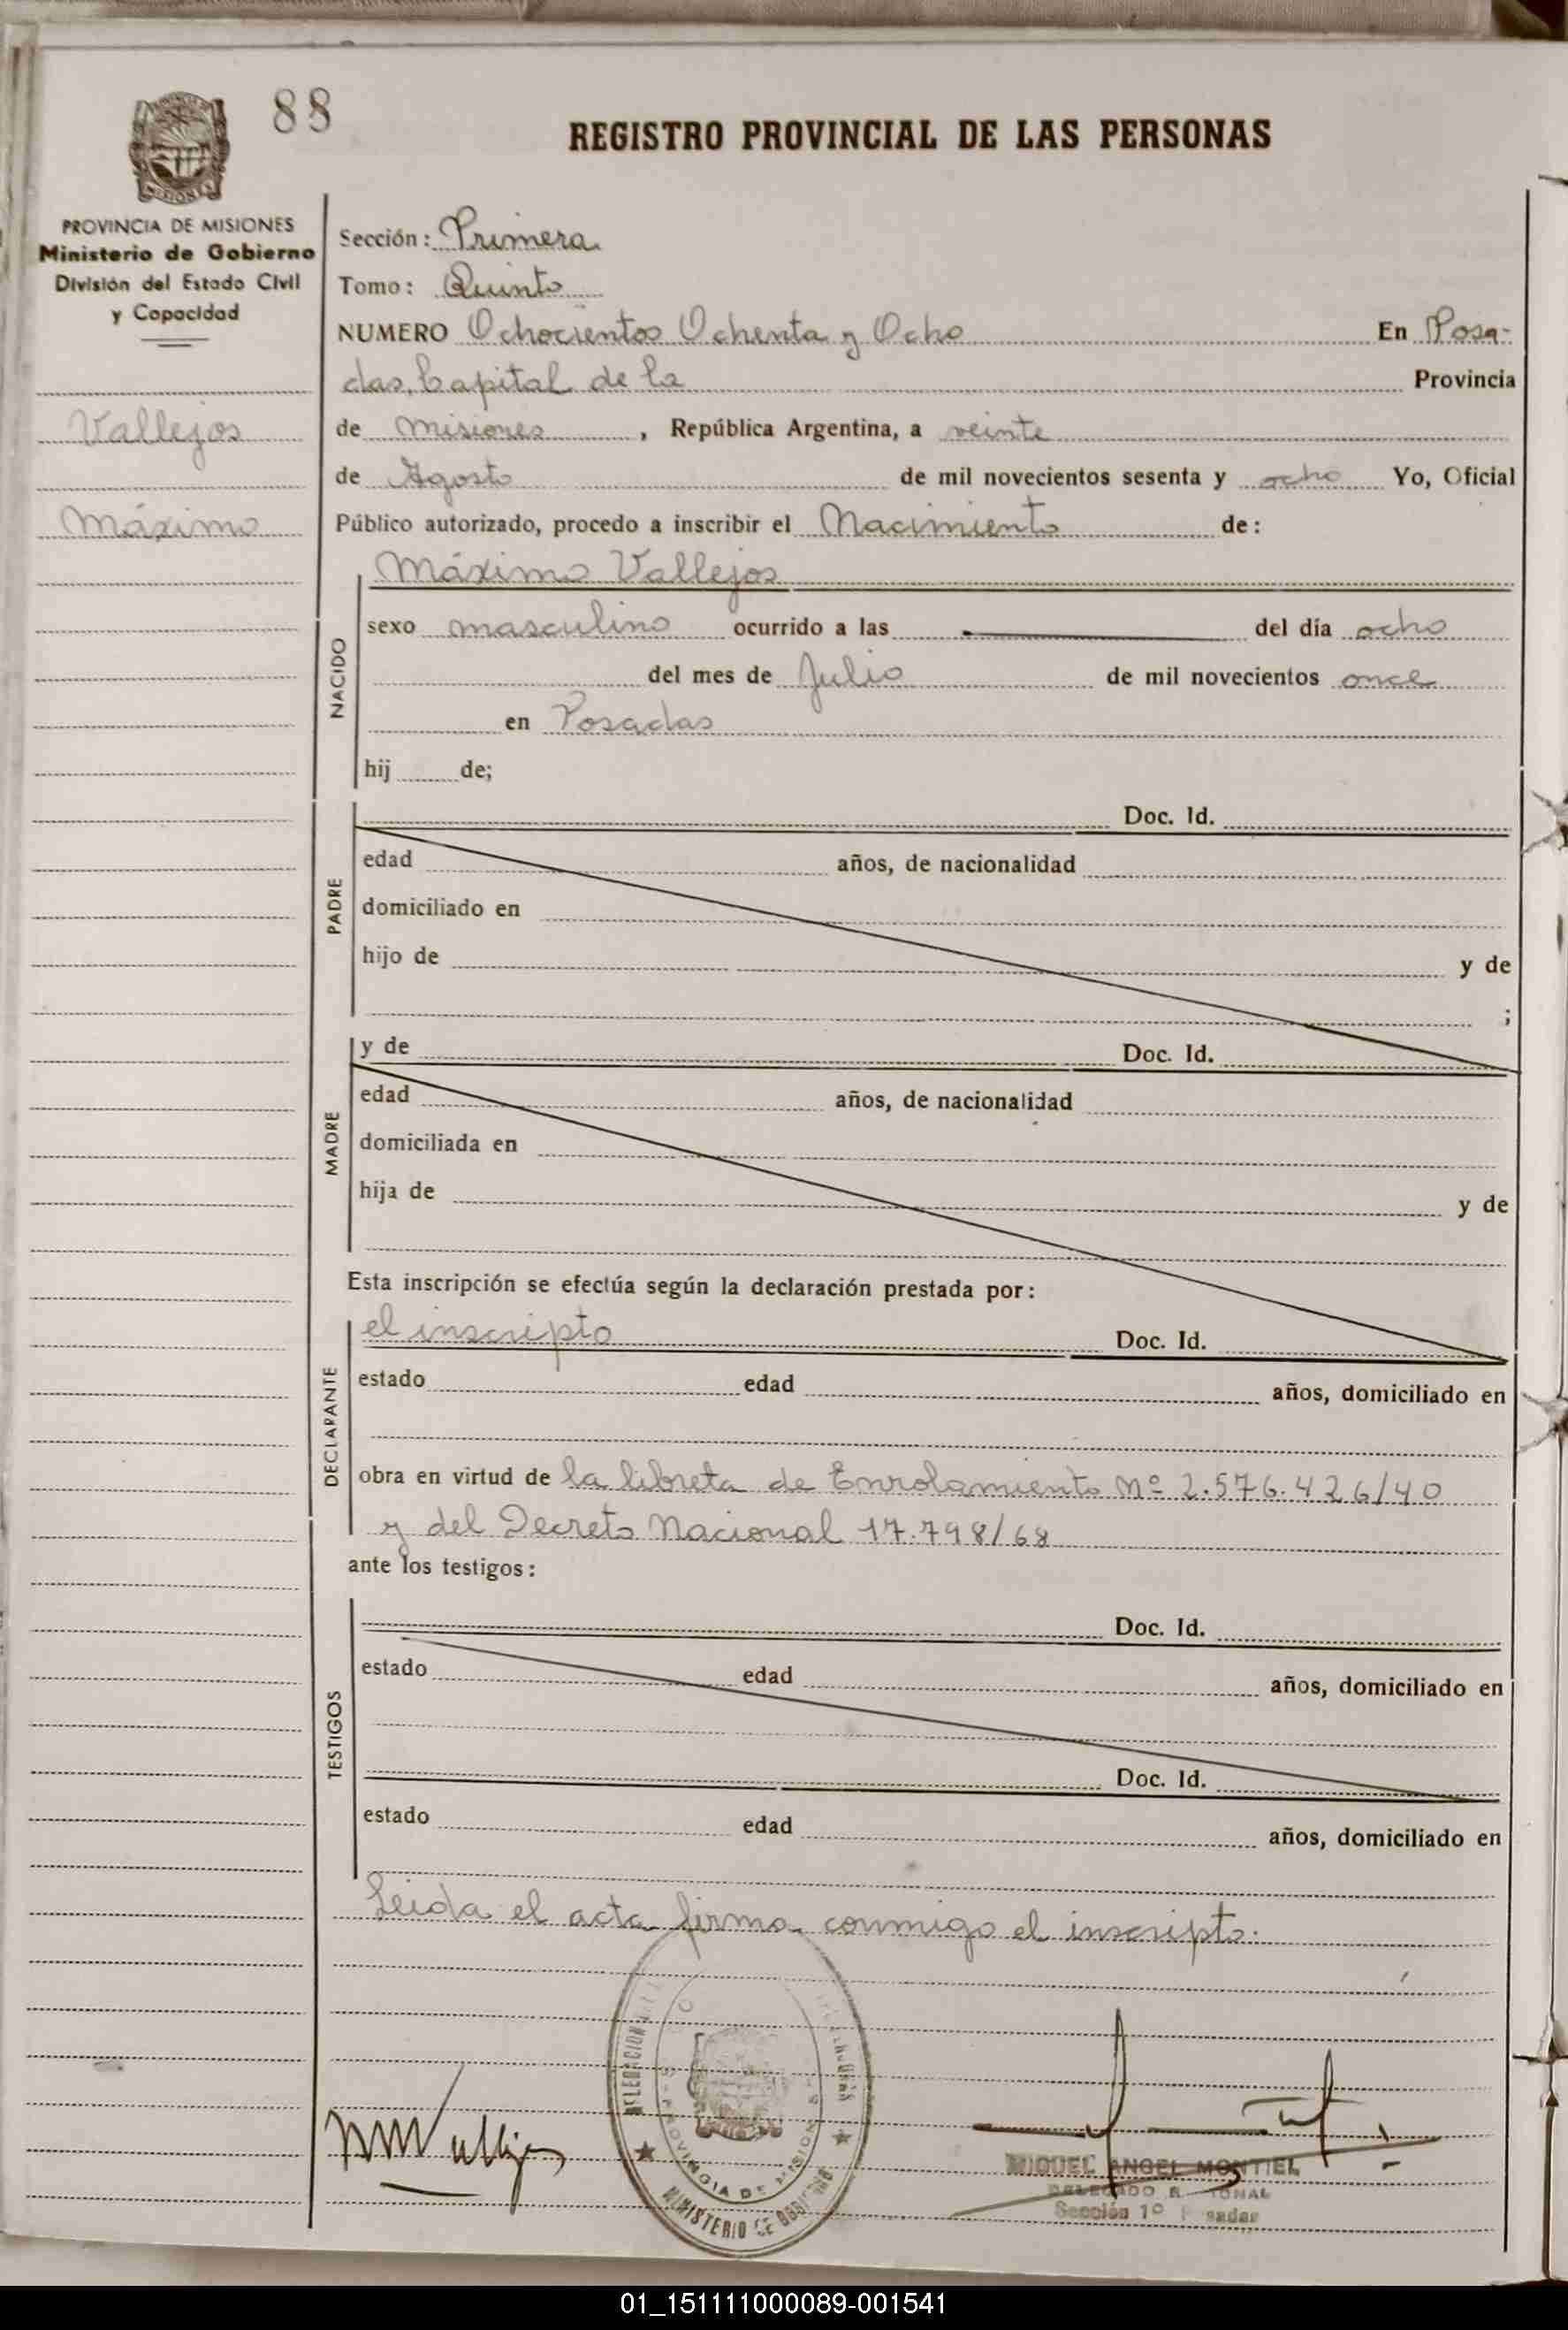 88
REGISTRO PROVINCIAL DE LAS PERSONAS
MISIONES
PROVINCIA DE MISIONES
Ministerio de Gobierno
División del Estado Civil
y Capacidad
Vallejos
Máximo
Sección: Primera
Tomo: Quinto
NUMERO Ochocientos Ochenta y Ocho En Posa-
das, Capital de la Provincia
de Misiones, República Argentina, a veinte
de Agosto de mil novecientos sesenta y ocho Yo, Oficial
Público autorizado, procedo a inscribir el Nacimiento de:
NACIDO
Máximo Vallejos
sexo masculino ocurrido a las del día ocho
del mes de Julio de mil novecientos once
en Posadas
hij de;
PADRE
Doc. Id.
edad años, de nacionalidad
domiciliado en
hijo de y de
;
MADRE
y de Doc. Id.
edad años, de nacionalidad
domiciliada en
hija de y de
Esta inscripción se efectúa según la declaración prestada por:
DECLARANTE
el inscripto Doc. Id.
estado edad años, domiciliado en
obra en virtud de la libreta de Enrolamiento Nº 2.576.426/40
y del Decreto Nacional 17.798/68
ante los testigos:
TESTIGOS
Doc. Id.
estado edad años, domiciliado en
Doc. Id.
estado edad años, domiciliado en
Leida el acta firma conmigo el inscripto.
DELEGACION
PROVINCIA DE MISIONES
MINISTERIO DE GOBIERNO
MVallejos
MIGUEL ANGEL MONTIEL
DELEGADO R IONAL
Sección 1º Posadas
01_151111000089-001541